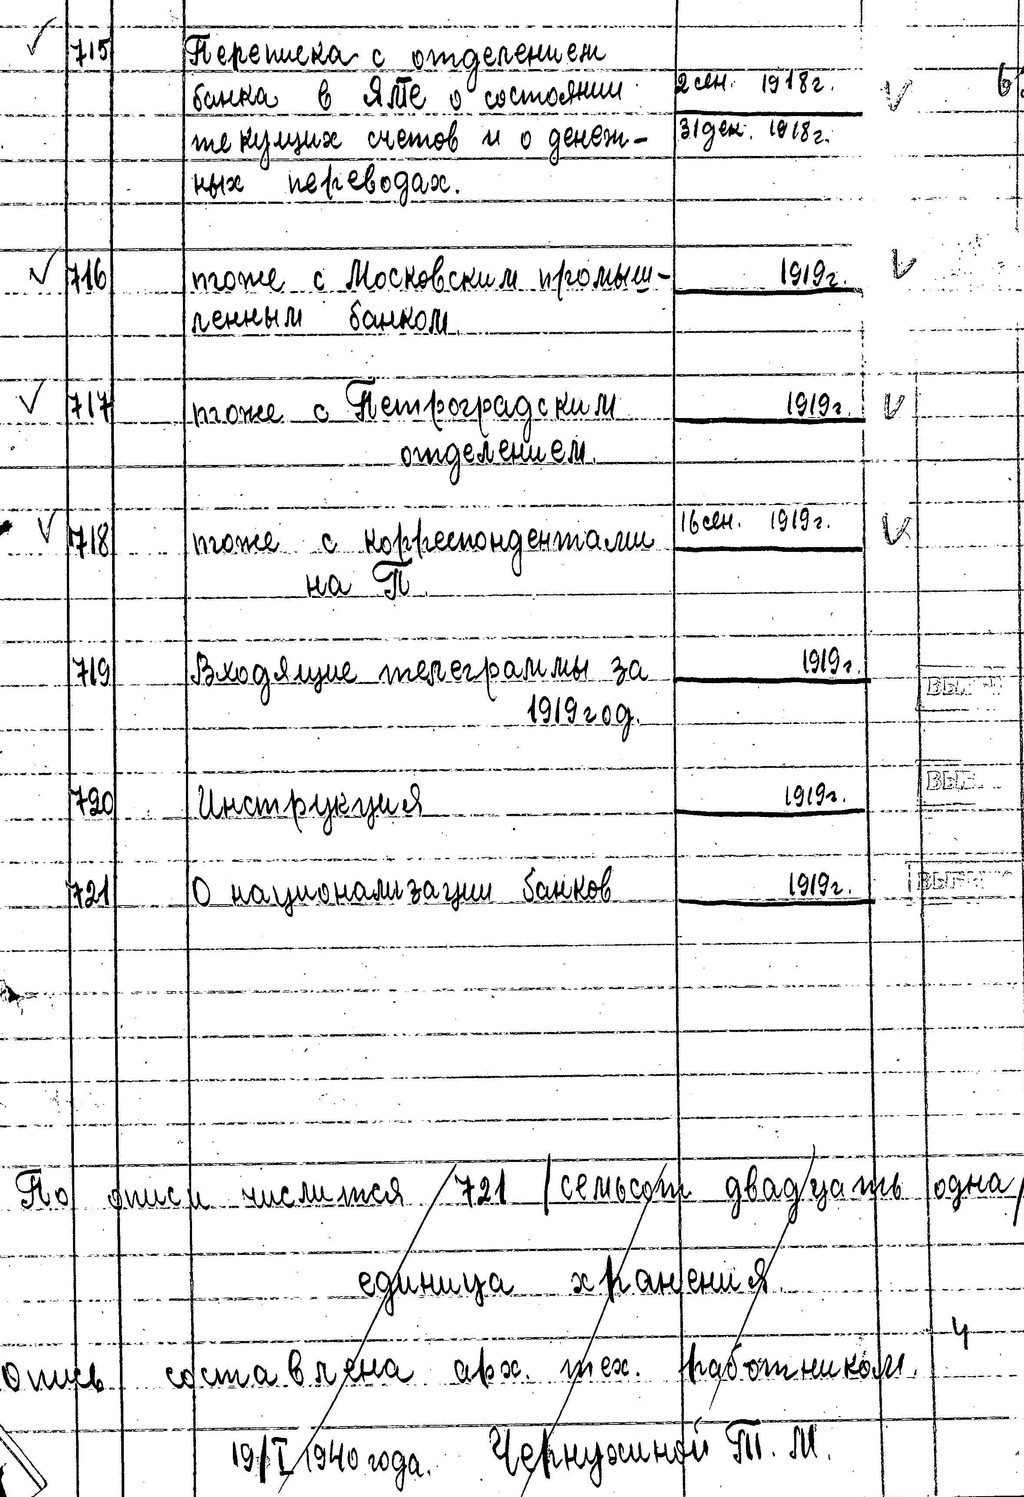 715 Переписка с отделением
банка в Ялте о состоянии 2 сен. 1918 г.
текущих счетов и о денеж- 31 дек. 1918 г.
ных переводах.
716 тоже с Московским промыш- 1919 г.
ленным банком.
717 тоже с Петроградским 1919 г.
отделением.
718 тоже с корреспондентами 16 сен. 1919 г.
на П.
719 Входящие телеграммы за 1919 г.
1919 год.
720 Инструкция 1919 г.
721 О национализации банков 1919 г.
По описи числится 721 /семьсот двадцать одна/
единица хранения.
4
Опись составлена арх. тех. работником.
19/I 1940 года. Чернухиной Т. М.